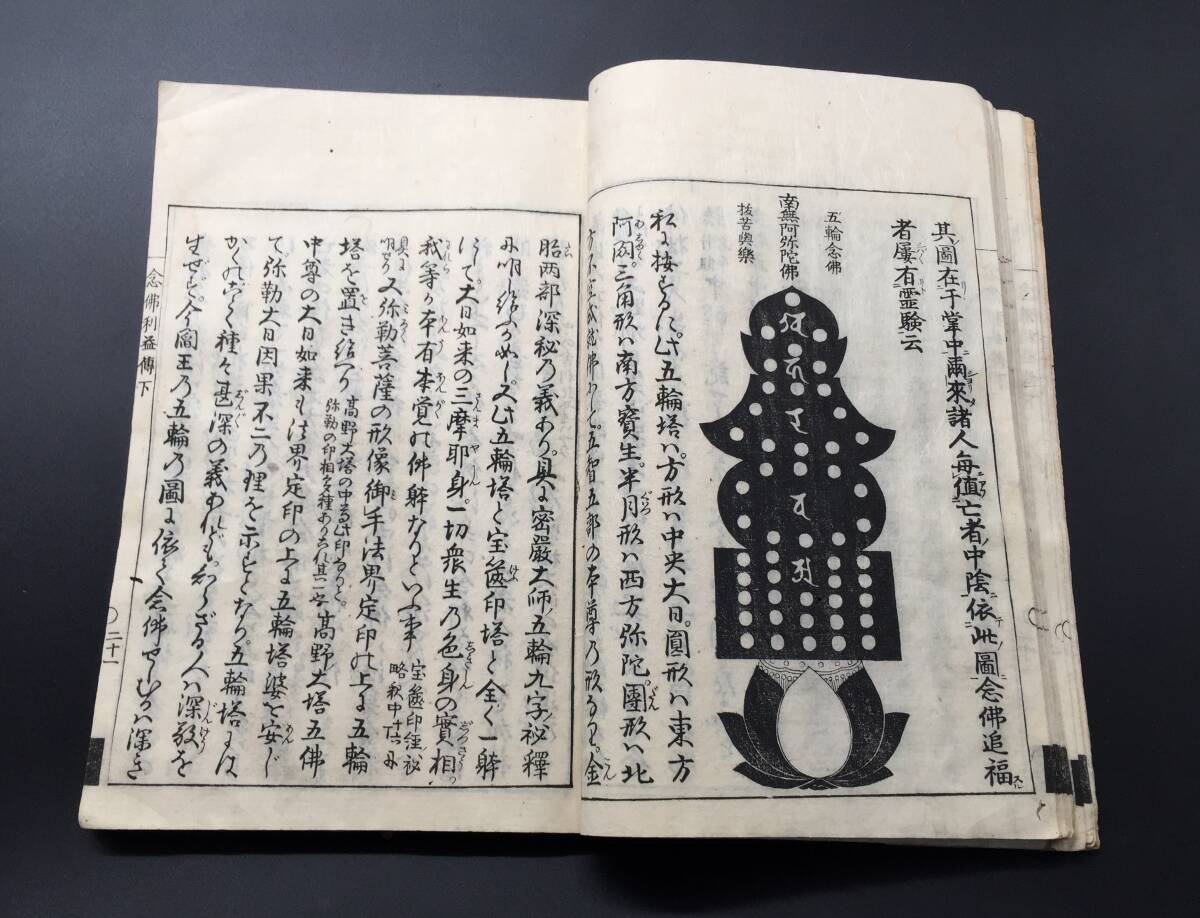 其圖在于掌中爾來諸人每値亡者中陰依此圖念佛追福
者屢有霊験云
五輪念佛
南無阿弥陀佛
抜苦與樂
私に按ずるに此五輪塔ハ方形ハ中央大日圓形ハ東方
阿閦三角形ハ南方寶生半月形ハ西方弥陀團形ハ北
五智五部の本尊乃形なり金
胎両部深秘乃義あり具に密嚴大師五輪九字秘釋
に明し給ふがごとし又此五輪塔と宝篋印塔と全く一躰
にして大日如来の三摩耶身一切衆生乃色身の實相
我等が本有本覚の佛躰なりといふ事宝篋印経秘略釈中に
具に明せり又弥勒菩薩の形像御手法界定印の上に五輪
塔を置き給へり高野大塔の中尊此印なりと弥勒の印相多種あり其一なり高野大塔五佛
中尊の大日如来も法界定印の上に五輪塔婆を安じ
て弥勒大日因果不二乃理を示すとなり五輪塔には
かくのごとく種々甚深の義あれども知らざる人ハ深敬を
生ぜず今閻王乃五輪乃圖に依て念佛せしむるハ深き
念佛利益傳下
二十一